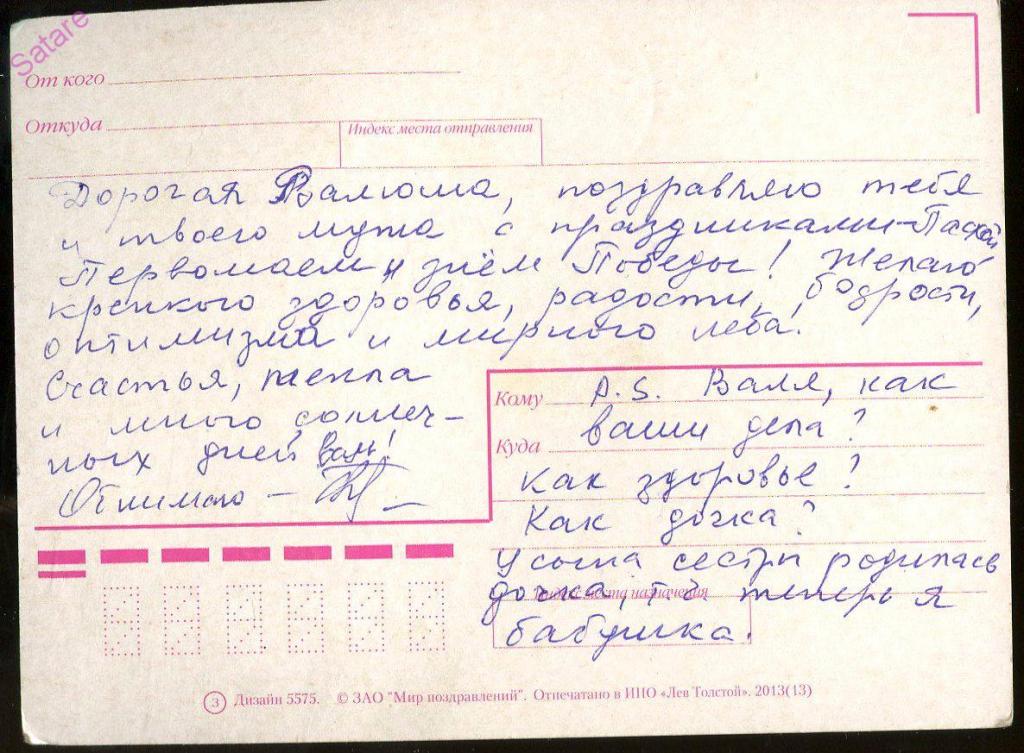 Satare
От кого
Откуда
Индекс места отправления
Дорогая Валюша, поздравляю тебя
и твоего мужа с праздниками-Пасхой
Первомаем и днём Победы! Желаю
крепкого здоровья, радости, бодрости,
оптимизма и мирного неба.
Счастья, тепла
и много солнеч-
ных дней вам!
Обнимаю —
Кому P.S. Валя, как
Куда ваши дела?
Как здоровье?
Как дочка?
У сына сестры родилась
дочка, т.ч. теперь я
Индекс места назначения
бабушка.
3 Дизайн 5575. © ЗАО "Мир поздравлений". Отпечатано в ИПО «Лев Толстой». 2013(13)